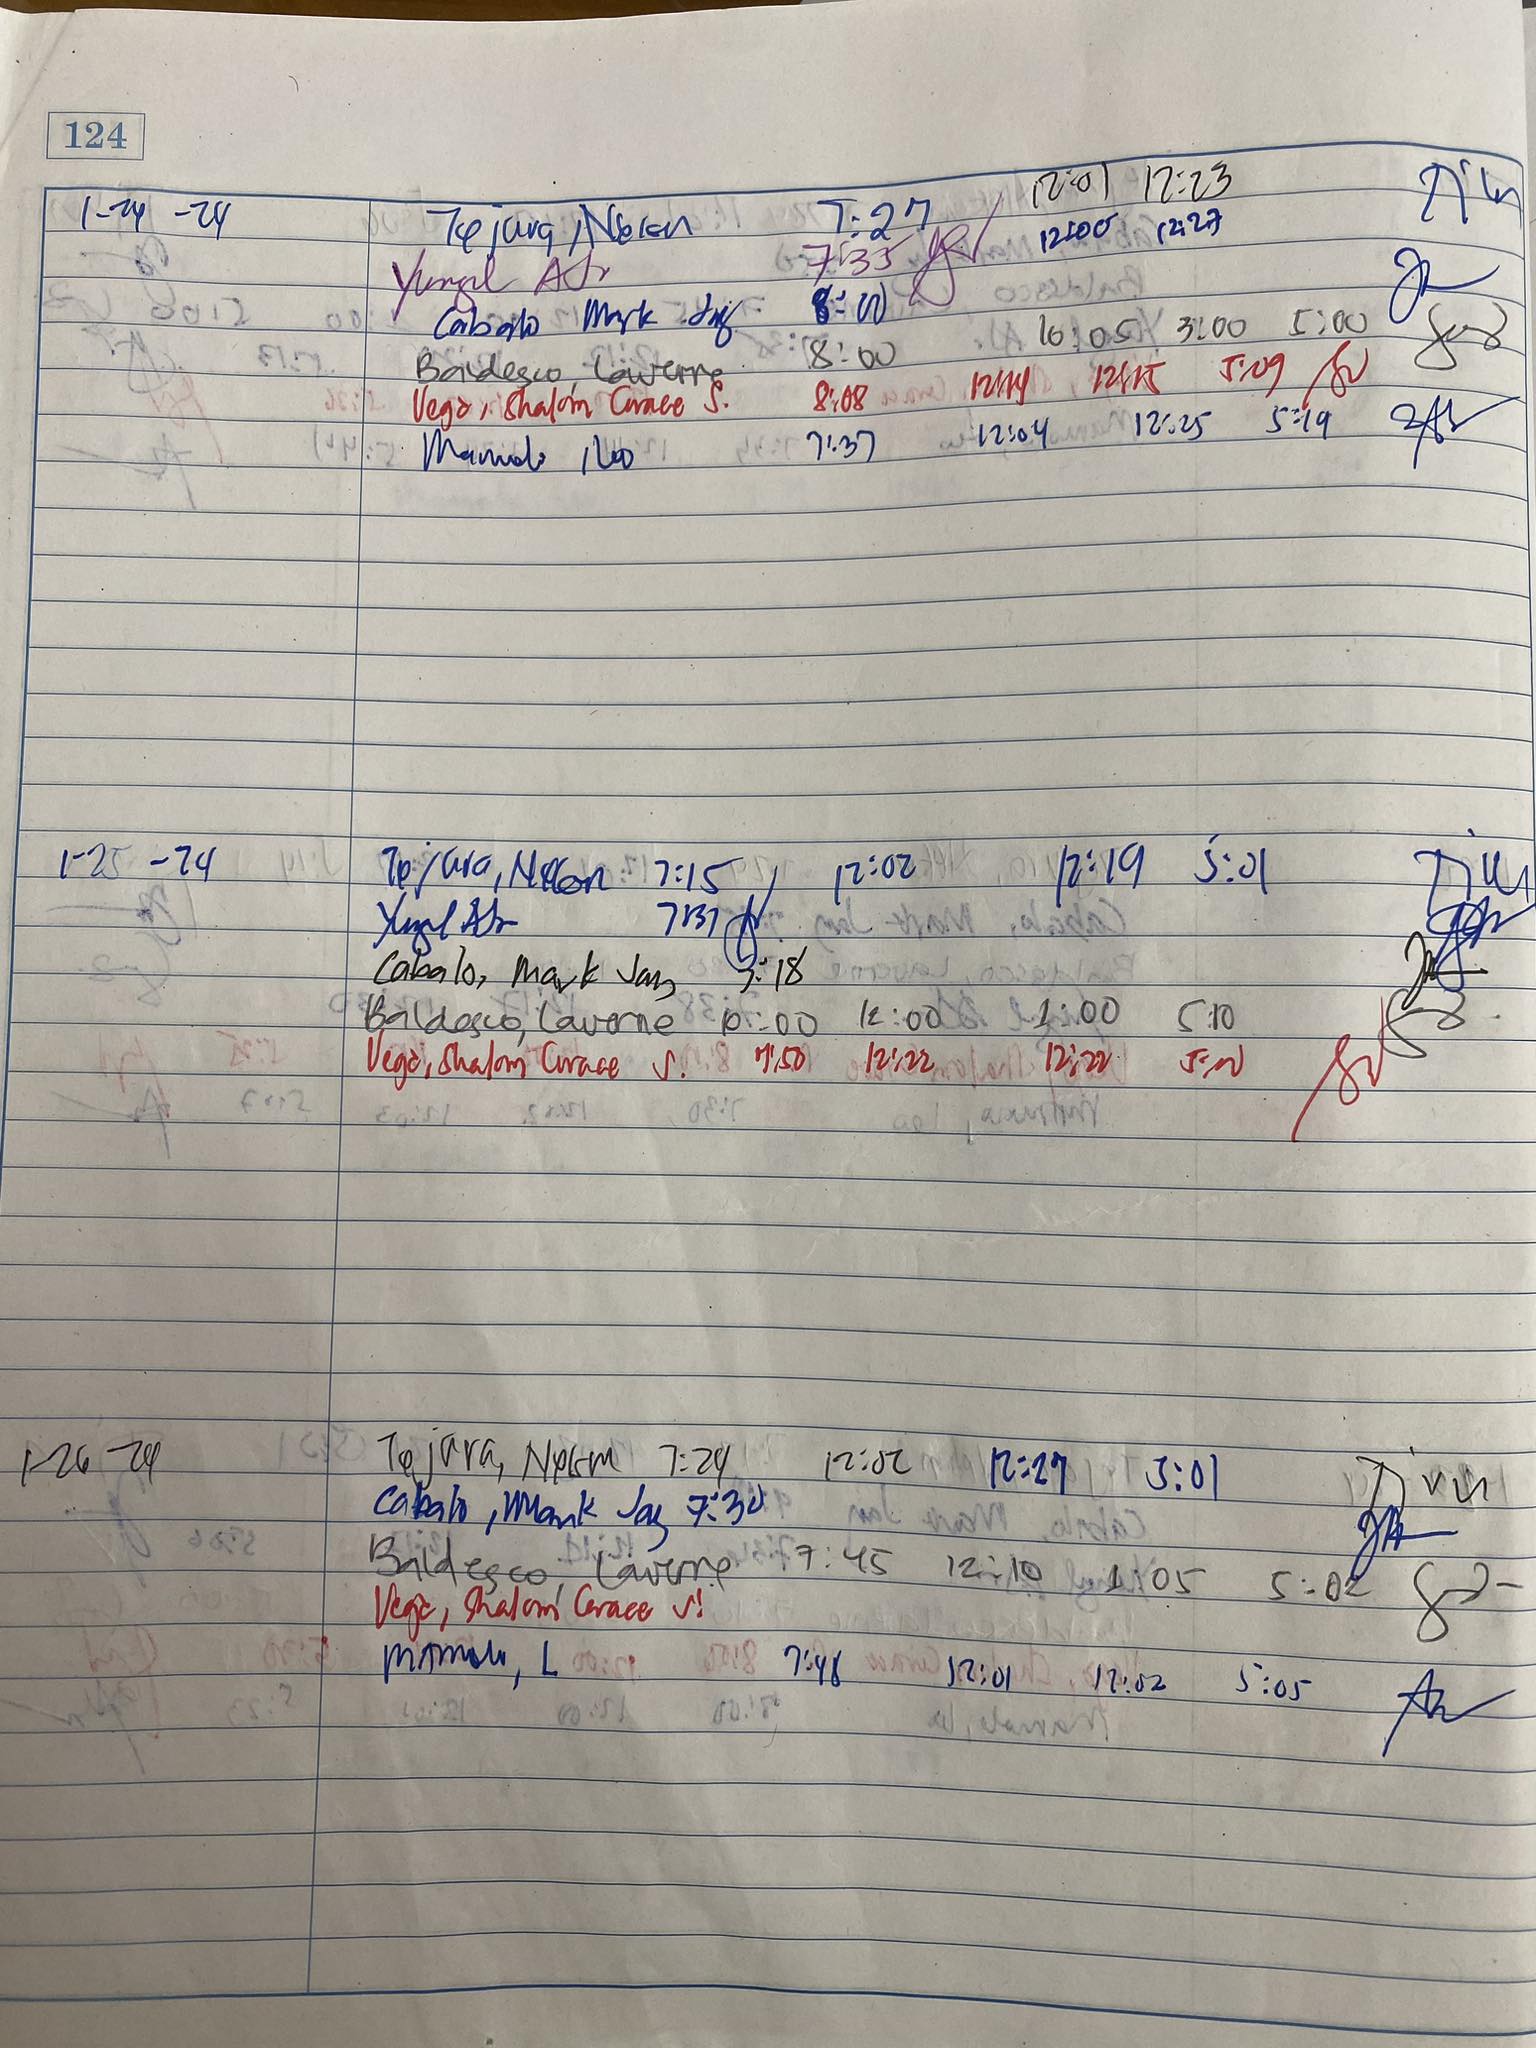 124
1-24 -24 Tejura, Nelson 7:27 12:01 12:23
7:35 12:00 12:27
Cabalo Mark Jay 8:00
Baldesco, Laverne 8:00 10:05 3:00 5:00
Vega, Shalom Grace S. 8:08 12:14 12:15 5:09
Mamolo, Leo 7:37 12:04 12:25 5:19
1-25 -24 Tejura, Nelson 7:15 12:02 12:19 5:01
7:37
Cabalo, Mark Jay 7:18
Baldesco, Laverne 10:00 12:00 1:00 5:10
Vega, Shalom Grace S. 7:50 12:22 12:22 5:00
1-26 -24 Tejura, Nelson 7:24 12:02 12:27 5:01
Cabalo, Mark Jay 7:30
Baldesco, Laverne 7:45 12:10 1:05 5:02
Vega, Shalom Grace S.
Mamolo, L 7:48 12:01 12:02 5:05